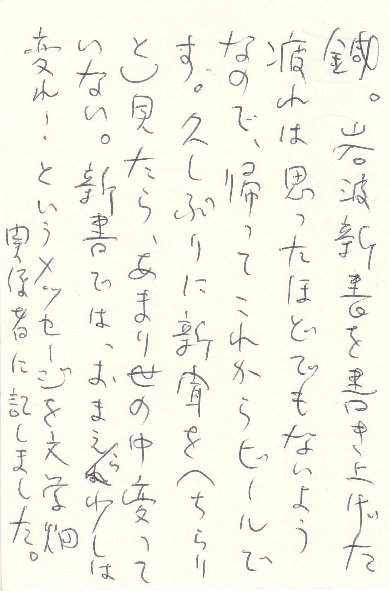 鍼。岩波新書を書き上げた
疲れは思ったほどでもないよう
なので、帰ってこれからビールで
す。久しぶりに新聞を〈ちらり
と〉見たら、あまり世の中変って
いない。新書では、おまえら少しは
変れ!というメッセージを文学畑
関係者に記しました。